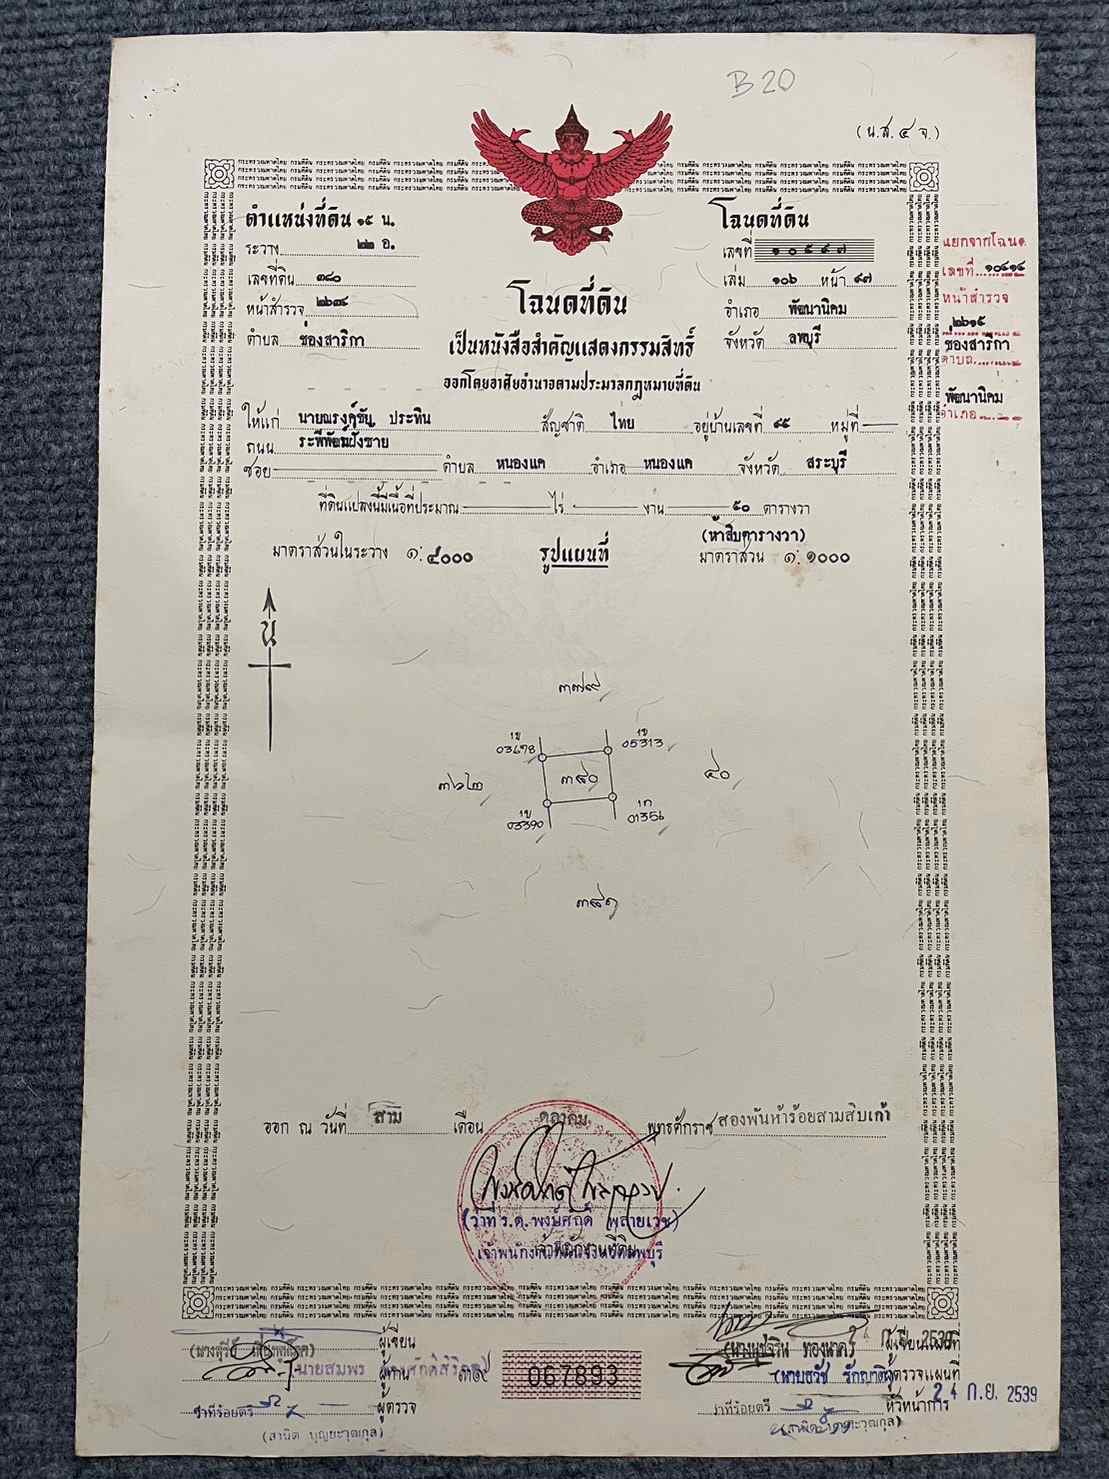 B20
(น.ส. ๔ จ.)
ตำแหน่งที่ดิน ๑๕ น.
ระวาง ๒๒ อ.
เลขที่ดิน ๓๘๐
หน้าสำรวจ ๒๖๓๔
ตำบล ช่องสาริกา
โฉนดที่ดิน
เลขที่ ๑๐๕๙๗
เล่ม ๑๐๖ หน้า ๙๗
อำเภอ พัฒนานิคม
จังหวัด ลพบุรี
แยกจากโฉนด
เลขที่ ๑๐๔๑๔
หน้าสำรวจ
๒๖๑๕
ช่องสาริกา
ตำบล
พัฒนานิคม
อำเภอ
โฉนดที่ดิน
เป็นหนังสือสำคัญแสดงกรรมสิทธิ์
ออกโดยอาศัยอำนาจตามประมวลกฎหมายที่ดิน
ให้แก่ นายณรงค์ชัย ประทิน สัญชาติ ไทย อยู่บ้านเลขที่ ๔๕ หมู่ที่
ถนน ระพีพัฒน์ฝั่งซาย
ซอย ตำบล หนองแค อำเภอ หนองแค จังหวัด สระบุรี
ที่ดินแปลงนี้มีเนื้อที่ประมาณ ไร่ งาน ๕๐ ตารางวา
(ห้าสิบตารางวา)
มาตราส่วนในระวาง ๑:๔๐๐๐ รูปแผนที่ มาตราส่วน ๑:๑๐๐๐
น
๓๗๙
1ข 1ข
03678 05313
๓๖๒ ๓๘๐ ๔๐
1ข 1ก
03390 01356
๓๘๑
ออก ณ วันที่ สาม เดือน ตุลาคม พุทธศักราช สองพันห้าร้อยสามสิบเก้า
(ว่าที่ ร.ต. พงษ์ศักดิ์ พลายเวช)
เจ้าพนักงานที่ดิน
ผู้เขียน
นายสมพร
ผู้ทาน
ว่าที่ร้อยตรี ผู้ตรวจ
(สานิต บุญยะวุฒกุล)
067893
ผู้เขียนแผนที่
ผู้ตรวจแผนที่
ว่าที่ร้อยตรี หัวหน้าการ
24 ก.ย. 2539